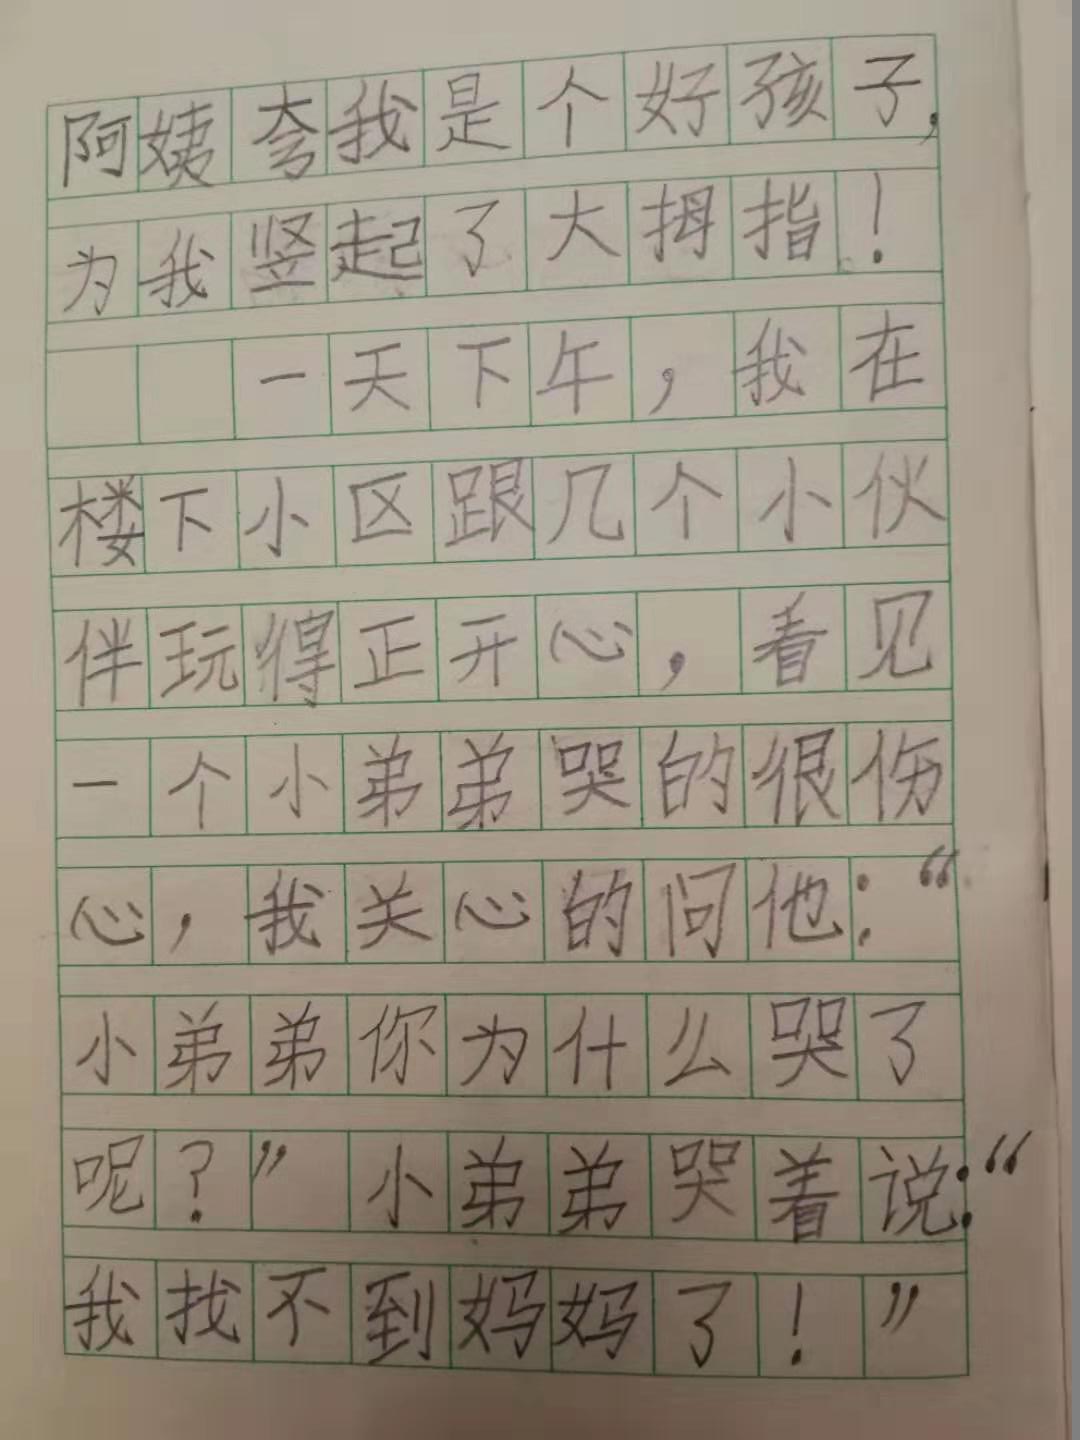 阿姨夸我是个好孩子,
为我竖起了大拇指!
一天下午,我在
楼下小区跟几个小伙
伴玩得正开心,看见
一个小弟弟哭的很伤
心,我关心的问他:“
小弟弟你为什么哭了
呢?”小弟弟哭着说:“
我找不到妈妈了!”